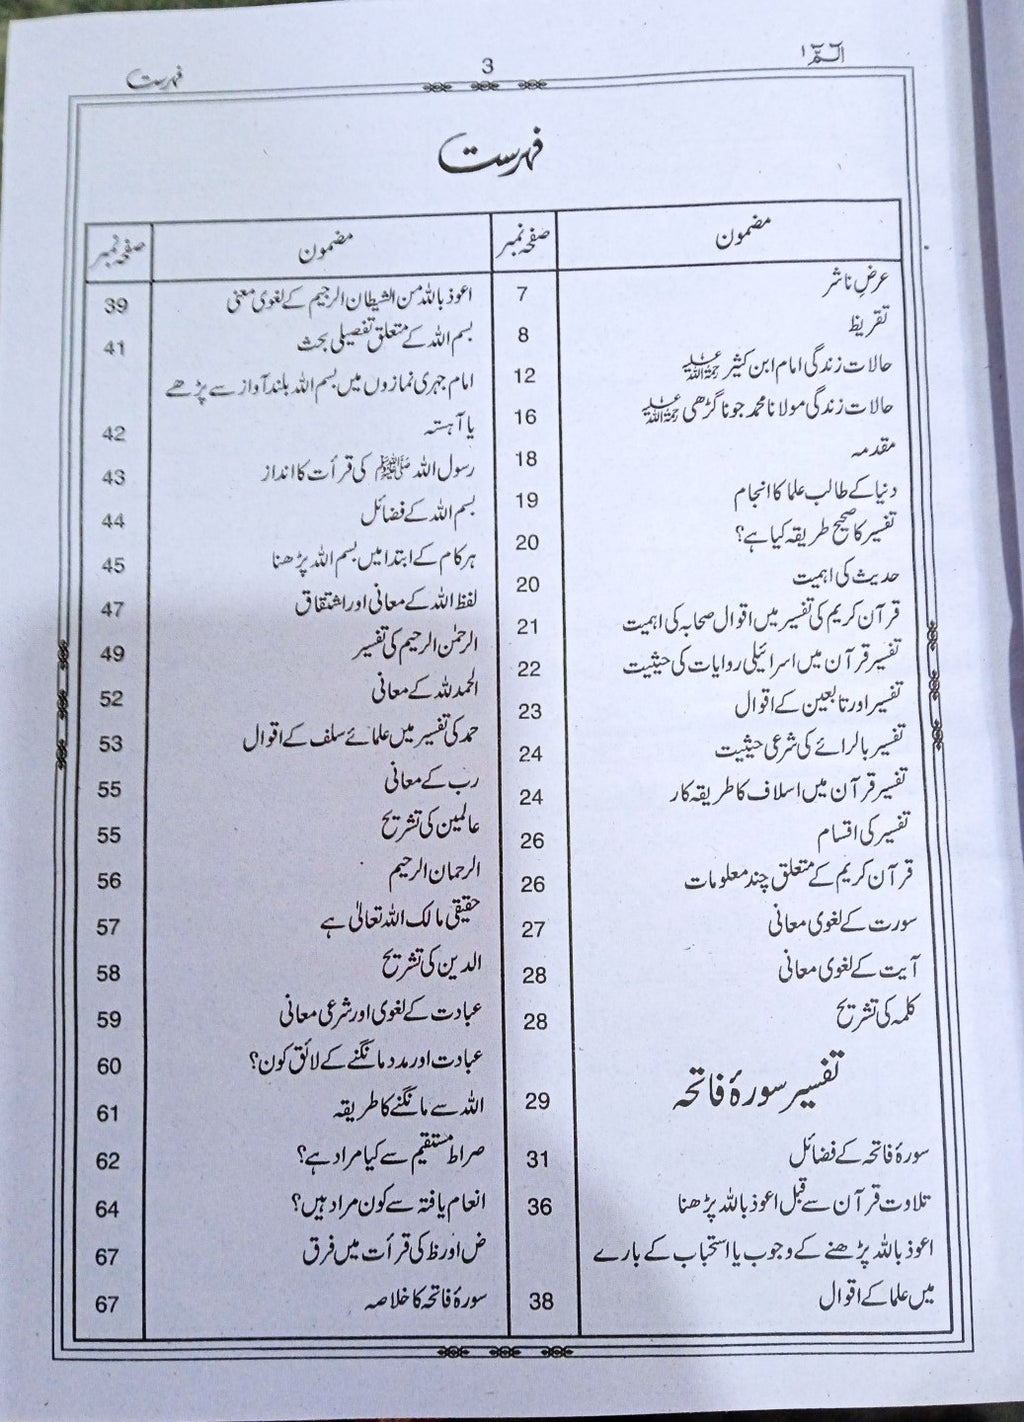 الٓمّٓ ۱
3
فہرست
فہرست
مضمون
صفحہ نمبر
عرضِ ناشر 7
تقریظ 8
حالات زندگی امام ابن کثیر رحمۃ اللہ علیہ 12
حالات زندگی مولانا محمد جونا گڑھی رحمۃ اللہ علیہ 16
مقدمہ 18
دنیا کے طالب علما کا انجام 19
تفسیر کا صحیح طریقہ کیا ہے؟ 20
حدیث کی اہمیت 20
قرآن کریم کی تفسیر میں اقوال صحابہ کی اہمیت 21
تفسیر قرآن میں اسرائیلی روایات کی حیثیت 22
تفسیر اور تابعین کے اقوال 23
تفسیر بالرائے کی شرعی حیثیت 24
تفسیر قرآن میں اسلاف کا طریقہ کار 24
تفسیر کی اقسام 26
قرآن کریم کے متعلق چند معلومات 26
سورت کے لغوی معانی 27
آیت کے لغوی معانی 28
کلمہ کی تشریح 28
تفسیر سورۂ فاتحہ 29
سورۂ فاتحہ کے فضائل 31
تلاوت قرآن سے قبل اعوذ باللہ پڑھنا 36
اعوذ باللہ پڑھنے کے وجوب یا استحباب کے بارے
میں علما کے اقوال 38
مضمون
صفحہ نمبر
اعوذ باللہ من الشیطان الرجیم کے لغوی معنی 39
بسم اللہ کے متعلق تفصیلی بحث 41
امام جہری نمازوں میں بسم اللہ بلند آواز سے پڑھے
یا آہستہ 42
رسول اللہ ﷺ کی قرأت کا انداز 43
بسم اللہ کے فضائل 44
ہر کام کے ابتدا میں بسم اللہ پڑھنا 45
لفظ اللہ کے معانی اور اشتقاق 47
الرحمٰن الرحیم کی تفسیر 49
الحمدللہ کے معانی 52
حمد کی تفسیر میں علمائے سلف کے اقوال 53
رب کے معانی 55
عالمین کی تشریح 55
الرحمان الرحیم 56
حقیقی مالک اللہ تعالیٰ ہے 57
الدین کی تشریح 58
عبادت کے لغوی اور شرعی معانی 59
عبادت اور مدد مانگنے کے لائق کون؟ 60
اللہ سے مانگنے کا طریقہ 61
صراط مستقیم سے کیا مراد ہے؟ 62
انعام یافتہ سے کون مراد ہیں؟ 64
ض اور ظ کی قرأت میں فرق 67
سورۂ فاتحہ کا خلاصہ 67